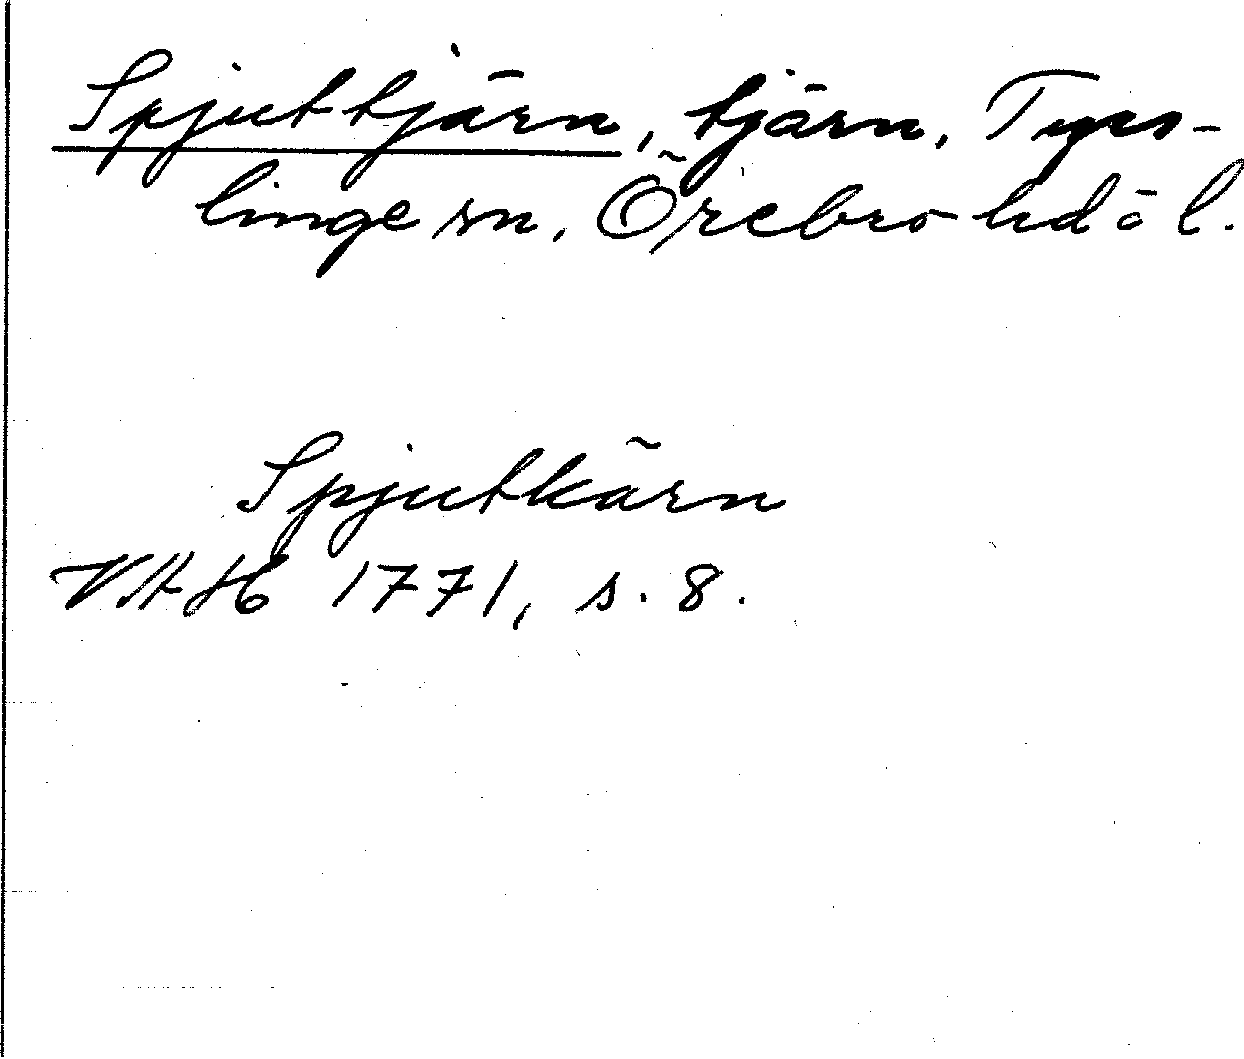 Spjuttjärn, tjärn, Tyss-
linge sn, Örebro hd ö l.
Spjutkärn
VAH 1771, s. 8.